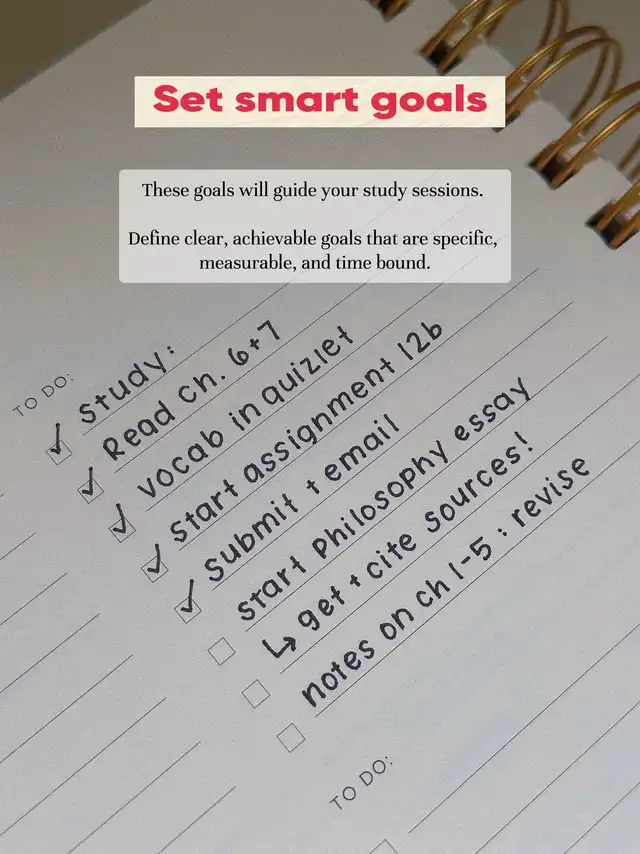 Set smart goals
These goals will guide your study sessions.
Define clear, achievable goals that are specific,
measurable, and time bound.
TO DO:
study:
Read Ch. 6+7
vocab in quizlet
start assignment 12b
submit + email
start philosophy essay
↳ get + cite sources!
notes on ch 1-5 : revise
TO DO: